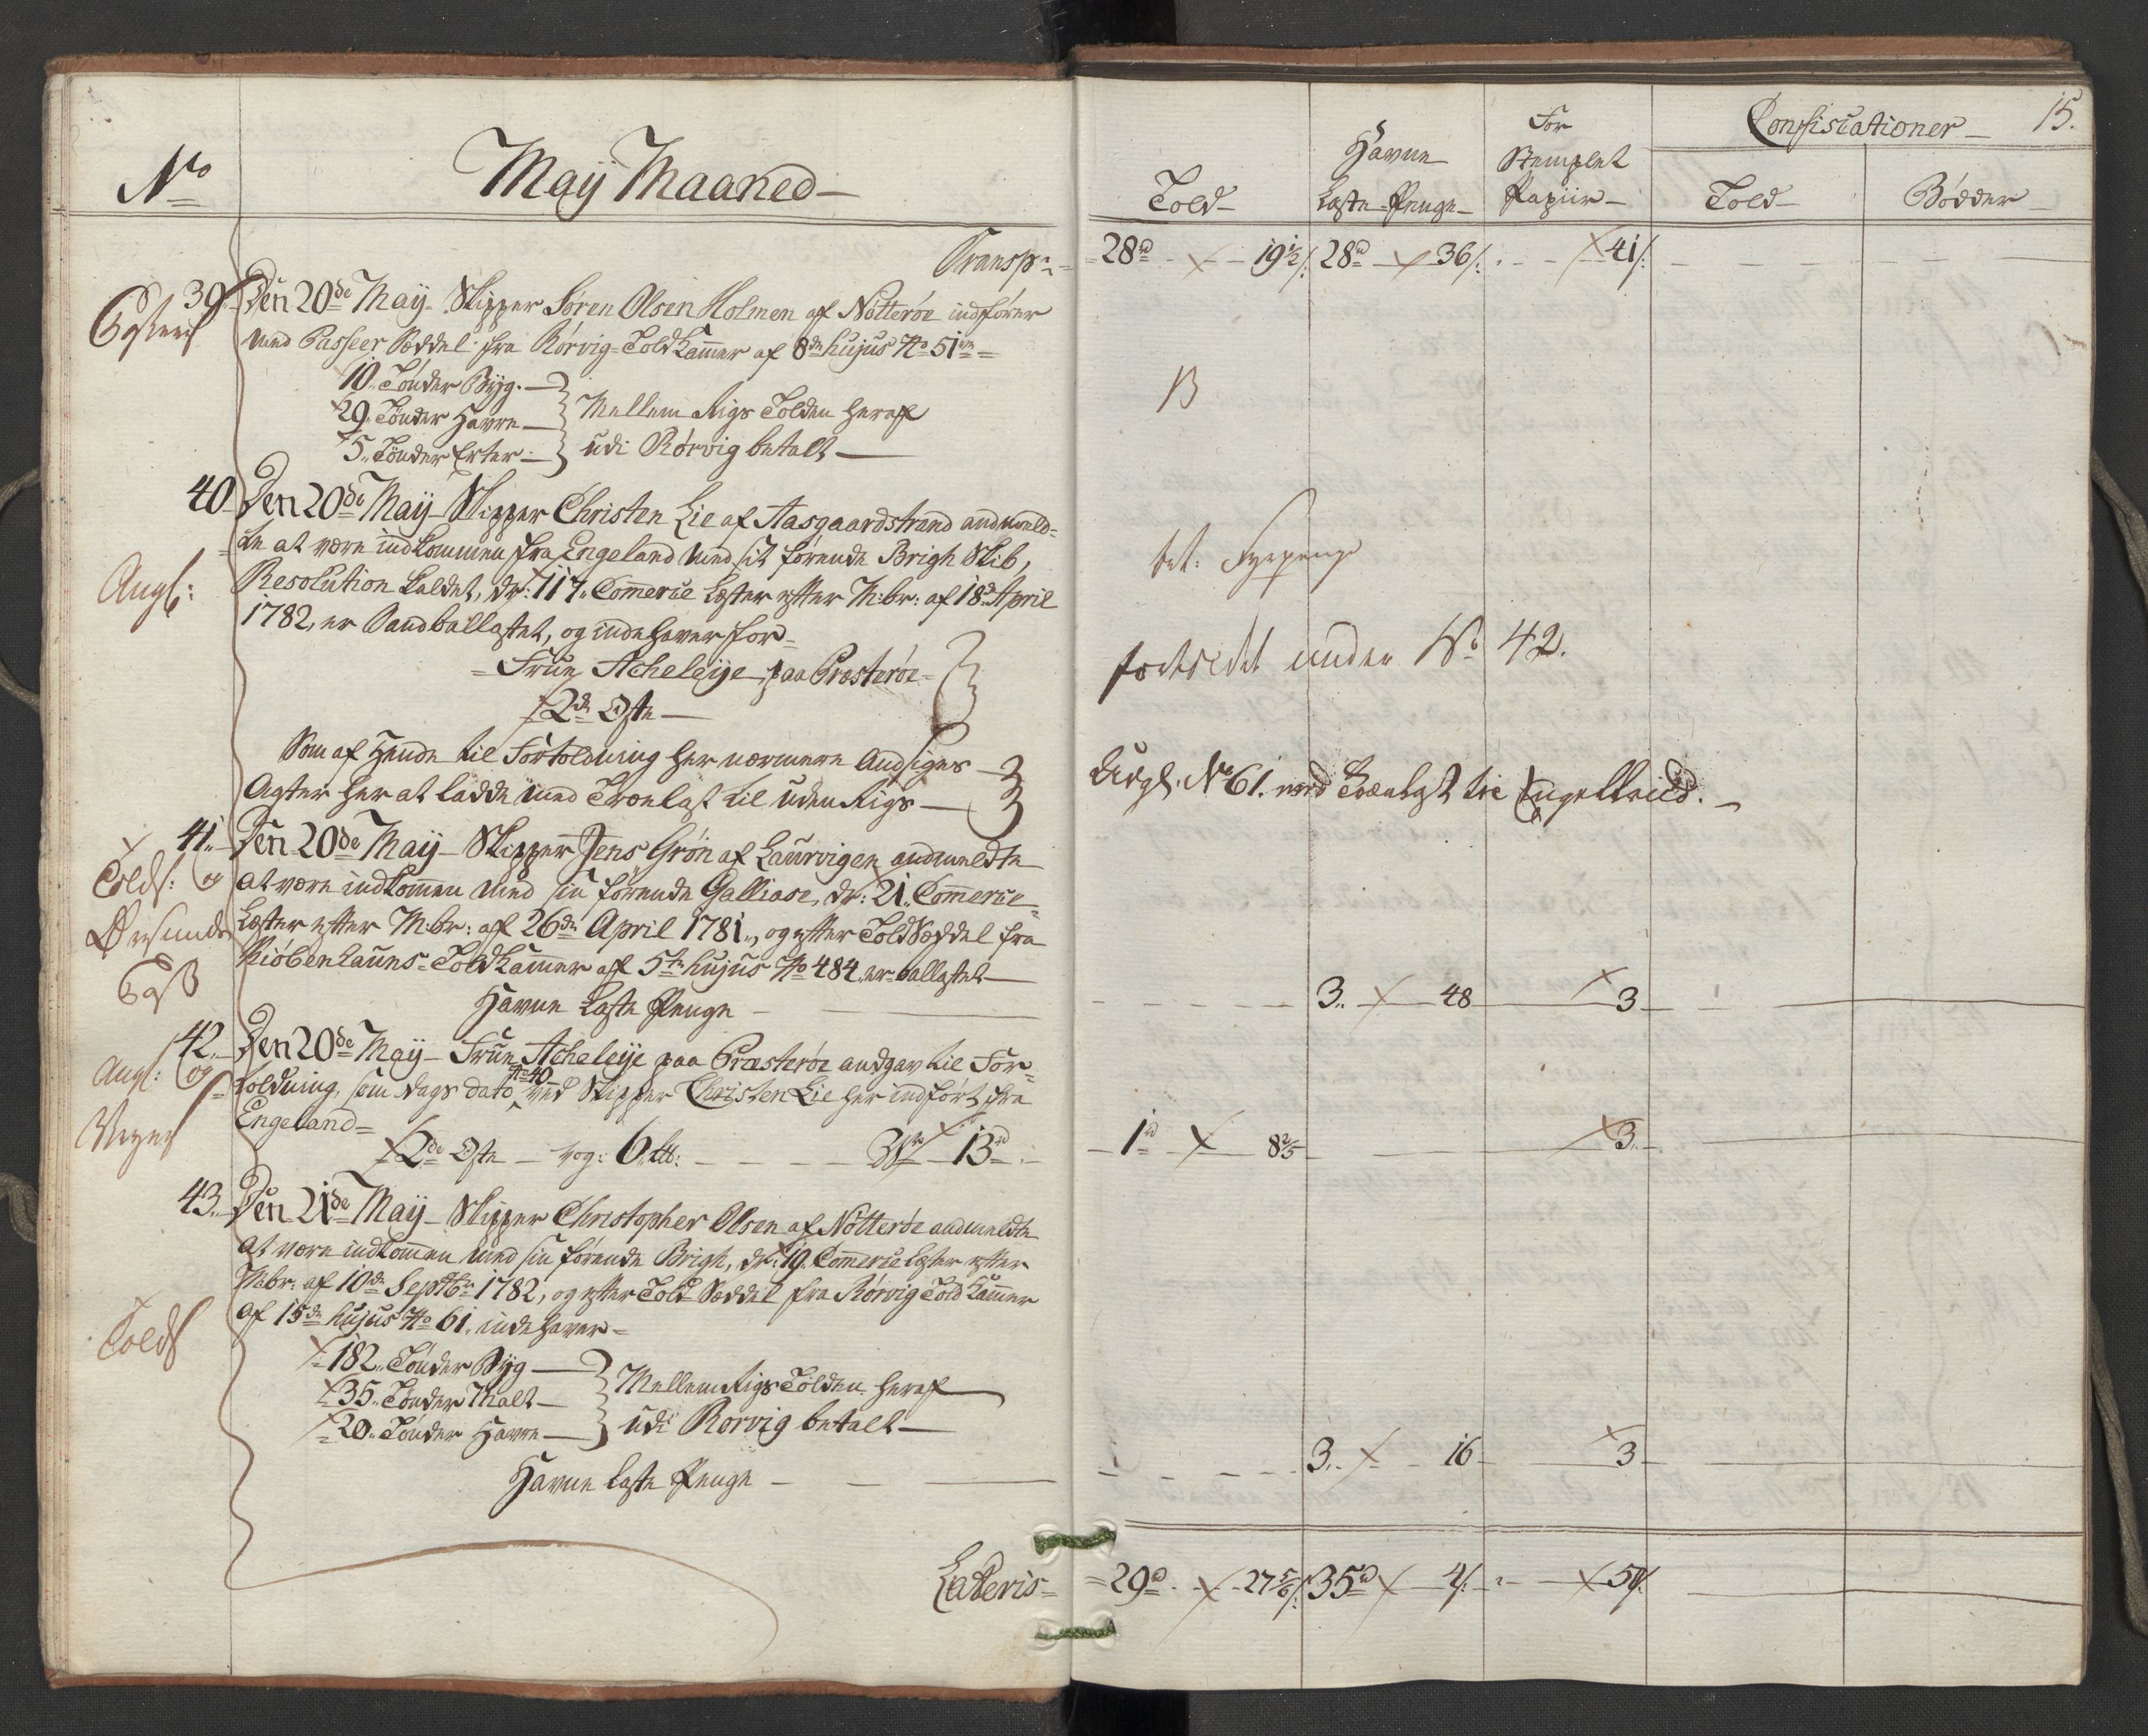 No
May Maaned
Transp:
39. Den 20de May Skipper Søren Olsen Holmen af Nøtterøe indfører
med Passeer Sæddel fra Rørvig Told Kammer af 8de hujus No 51
10. Tønder Byg.
29. Tønder Havre
5. Tønder Erter
Mellem Rigs Tolden heraf
udi Rørvig betalt
40 Den 20de May Skipper Christen Lie af Aasgaardstrand andmeld-
te at være indkommen fra Engeland med sit førende Brigh Skib,
Angl:
Resolution kaldet, dr: 117. Commerce Læster efter M:br: af 18de April
1782, er Sandballastet, og indehaver for
Frue Acheleye paa Præsterøe
2de Oste
Som af Hende til Fortoldning her nærmere Andgives
Agter her at ladde med Trælast til uden Rigs
41. Den 20de May Skipper Jens Grøn af Laurvigen andmeldte
Tolds: og at være indkommen med sin førende Galliase, dr: 21. Commerce
Øresunds Læster efter M:br: af 26de April 1781., og efter Told Sæddel fra
Kiøbenhauns Told Kammer af 5te hujus No 484. er ballastet
Havne Læste Penge
42. Den 20de May Frue Acheleye paa Præsterøe andgav til For-
Angl: og toldning, som dags dato No 40 ved Skipper Christen Lie her indført fra
Engeland
2de Oste vog: 6 lb: 13
43. Den 21de May Skipper Christopher Olsen af Nøtterøe andmeldte
at være indkommen med sin førende Brigh, dr: 19. Commerce Læster efter
M:br: af 10de Septbr 1782, og efter Told Sæddel fra Rørvig Told Kammer
Tolds
af 15de hujus No 61. indehaver
182. Tønder Byg
35. Tønder Malt
20. Tønder Havre
Mellem Rigs Tolden heraf
udi Rørvig betalt
Havne Læste Penge
Lateris
15.
Told
Havne
Læste Penge
For
Stemplet
Papiir
Confiscationer
Told
Bødder
28 19½ 28 36 41
bet: Fyrpenge
fortoldet under No 42.
Udgl. No 61. med Trælast til Engelland.
3. 48 3
1 8 2/5 3.
3. 16 3
29 27 5/6 35 4 50